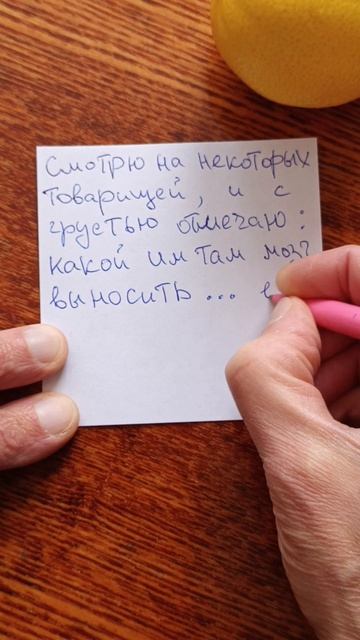 Смотрю на некоторых
товарищей, и с
грустью отмечаю:
какой им там мозг
выносить...